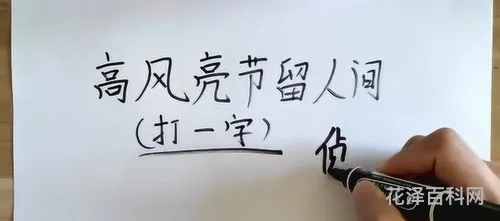 高风亮节留人间
(打一字)
侦
花泽百科网